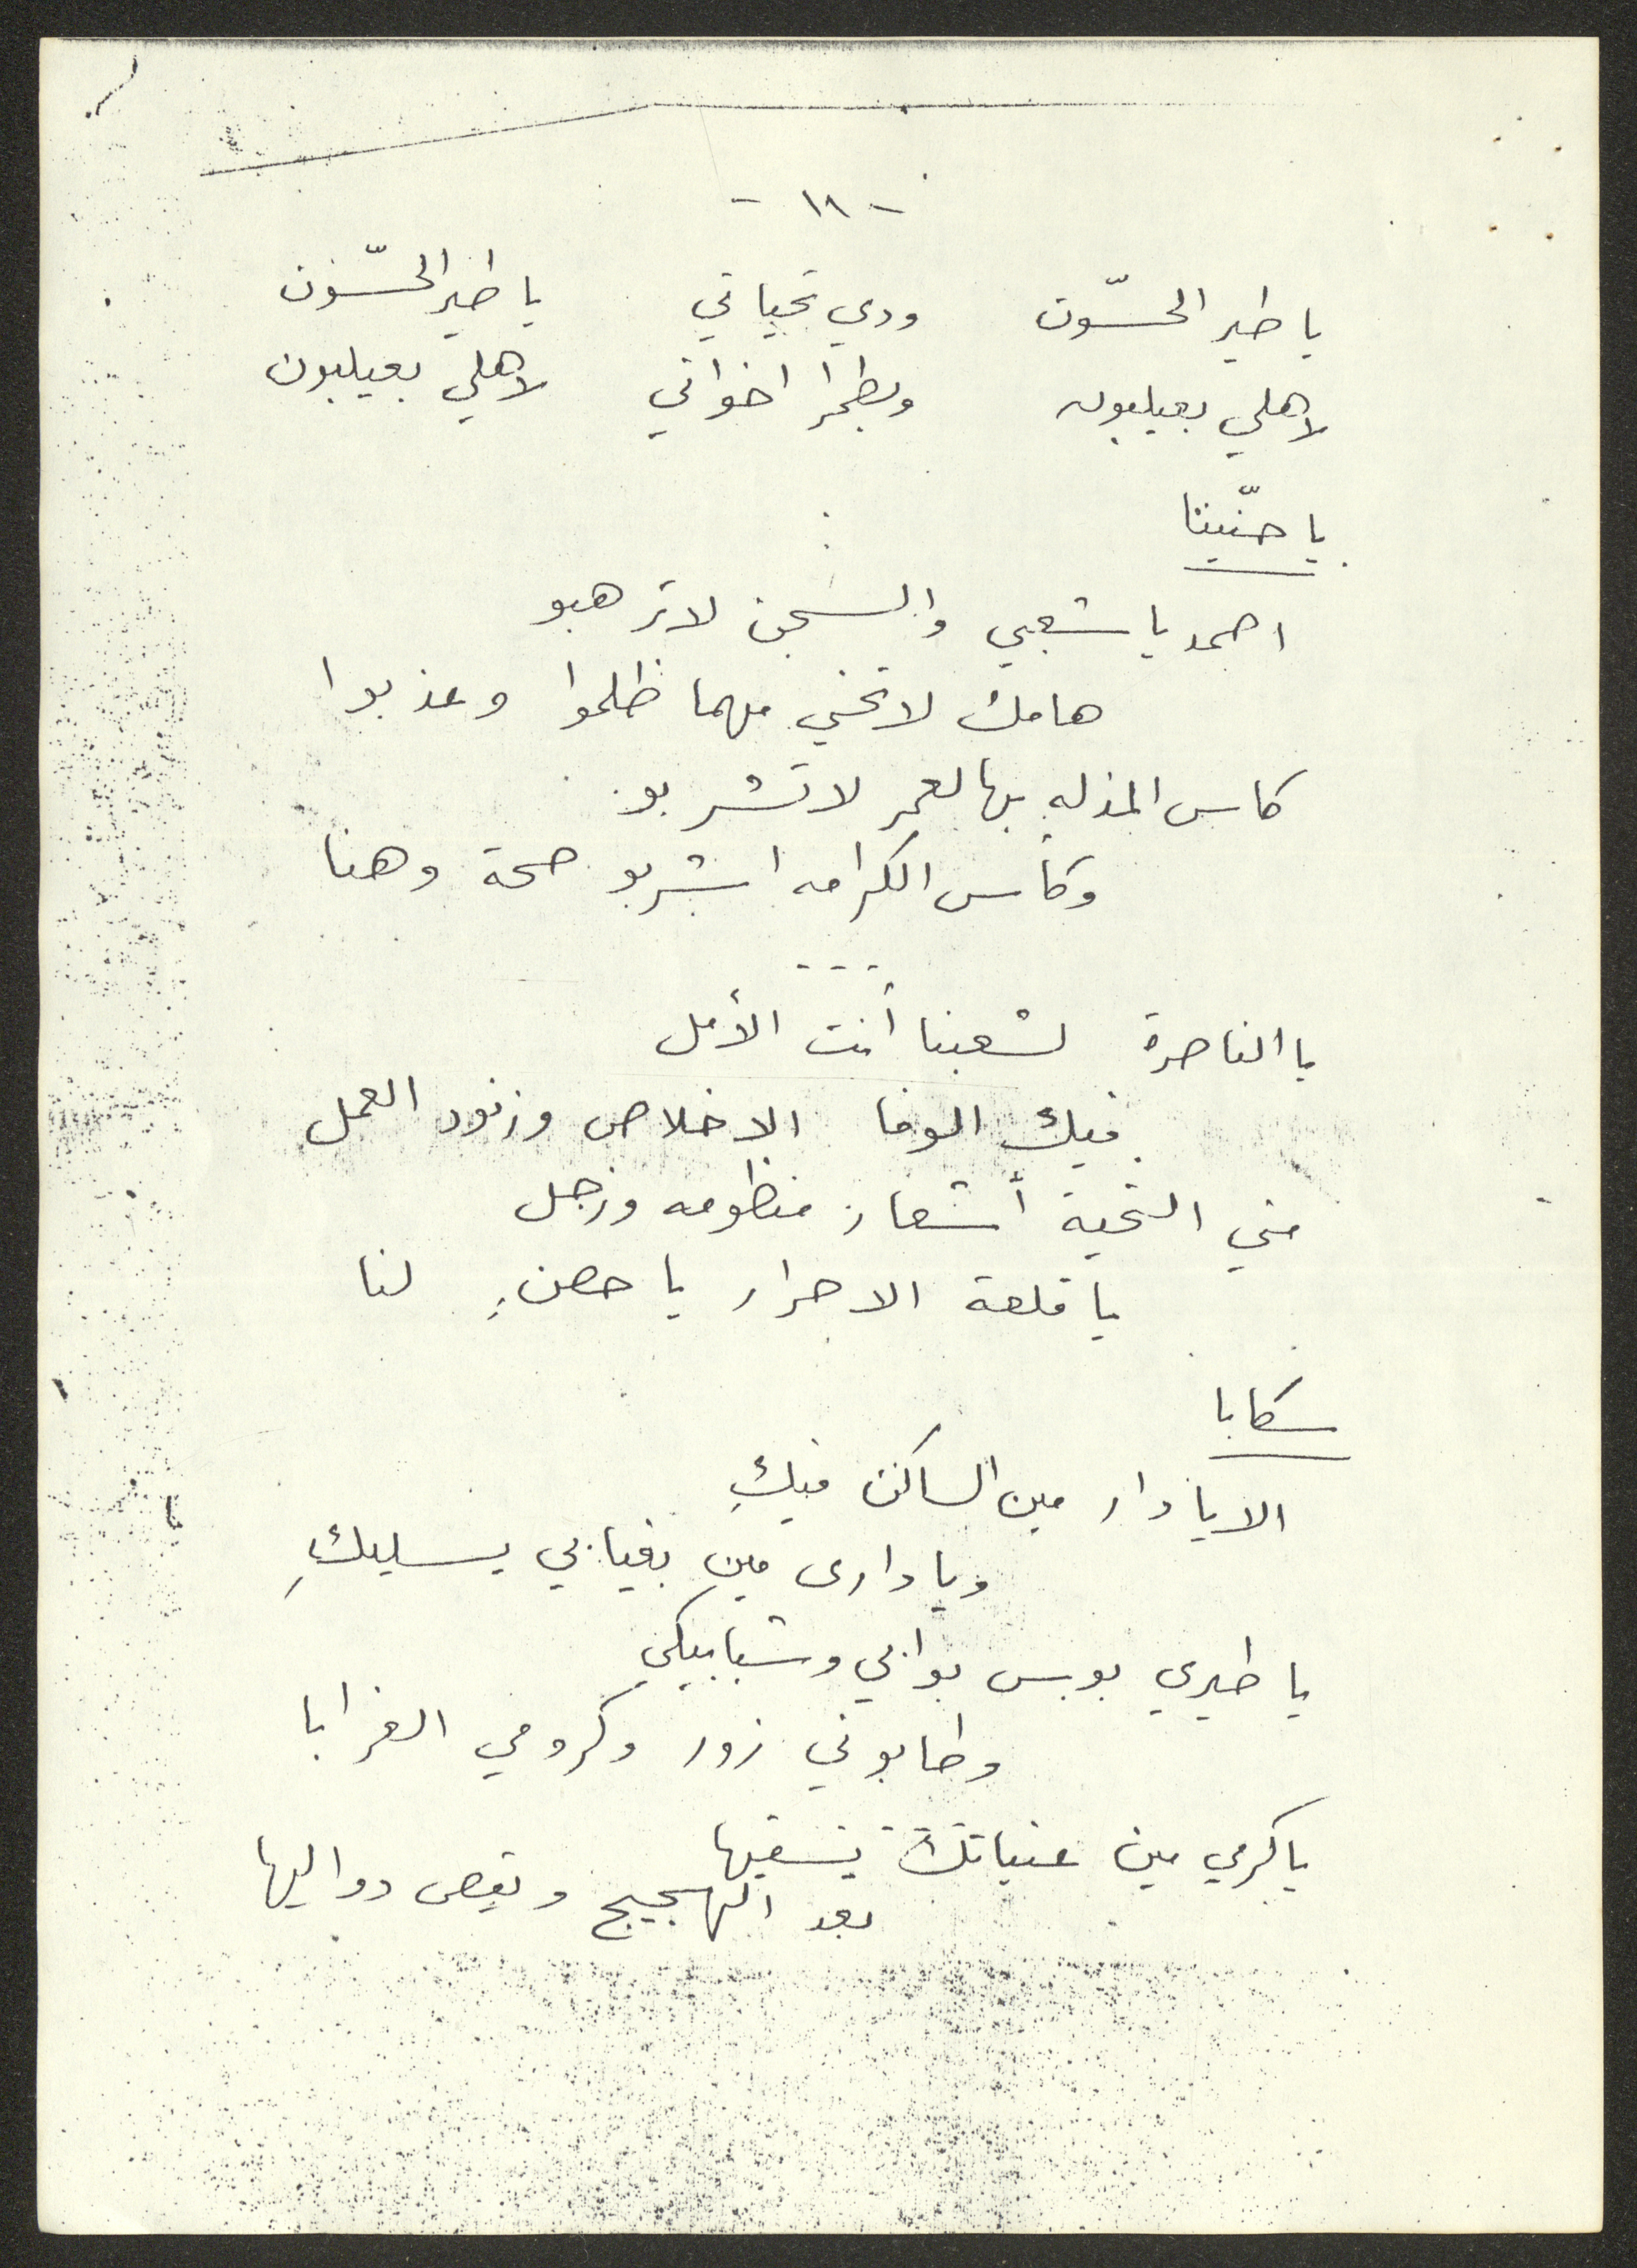 - ١٨ -
يا طير الحسّون ودي تحياتي يا طير الحسّون
لاهلي بعيلبون وبطمرا اخواتي لاهلي بعيلبون
يا حنّينا
اصمد يا شعبي والسجن لا ترهبو
هامك لا تحني مهما ظلموا وعذبوا
كاس المذله بهالعمر لا تشربو
وكاس الكرامه اشربو صحة وهنا
- - -
يا الناصرة لشعبنا أنت الأمل
فيك الوفا الاخلاص وزنود العمل
مني التحية أشعار منظومه وزجل
يا قلعة الاحرار يا حصنٍ لنا
سكابا
الا يا دار مين الساكن فيكِ
ويا داري مين بغيابي يسليكِ
يا طيري بوس بوابي وشبابيكي
وطابوني زور وكرومي الغرابا
يا كرمي مين عنباتك يسقيها
بعد الهجيج ويقص دواليها